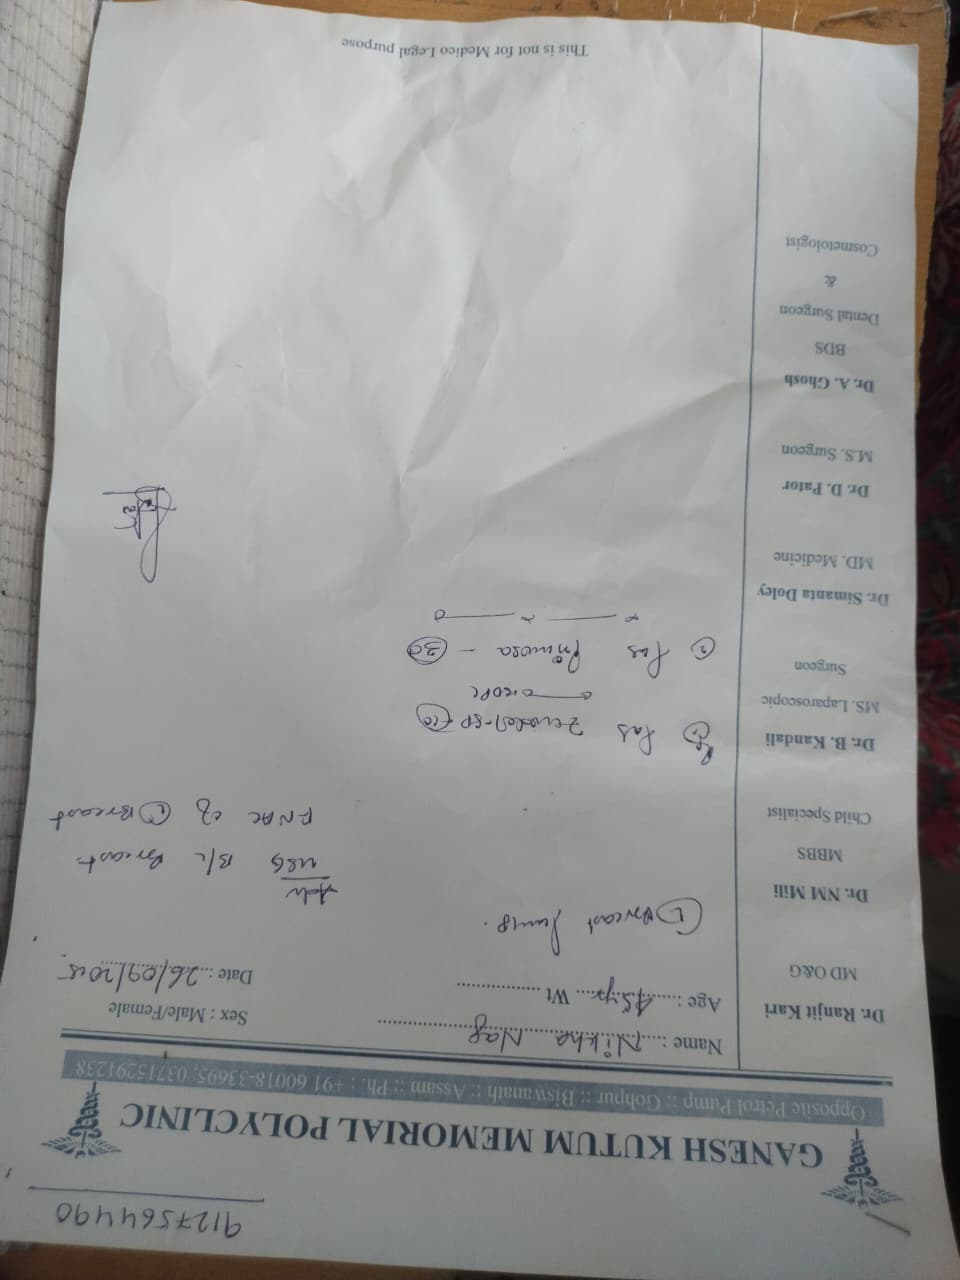 9127564490
GANESH KUTUM MEMORIAL POLYCLINIC
Opposite Petrol Pump :: Gohpur :: Biswanath :: Assam :: Ph. : +91 60018-33695, 03715291238
Name : Nikha Nag
Sex : Male/Female
Age : 45yr Wt
Date : 26/09/2025
Dr. Ranjit Kari
MD O&G
Dr. NM Mili
MBBS
Child Specialist
Dr. B. Kandali
MS. Laparoscopic
Surgeon
Dr. Simanta Doley
MD. Medicine
Dr. D. Pator
M.S. Surgeon
Dr. A. Ghosh
BDS
Dental Surgeon
&
Cosmetologist
(L) Breast lump.
Adv
USG B/L Breast
FNAC of (L) Breast
(1) Zerodol-SP (10)
(2) Primosa - (30)
This is not for Medico Legal purpose